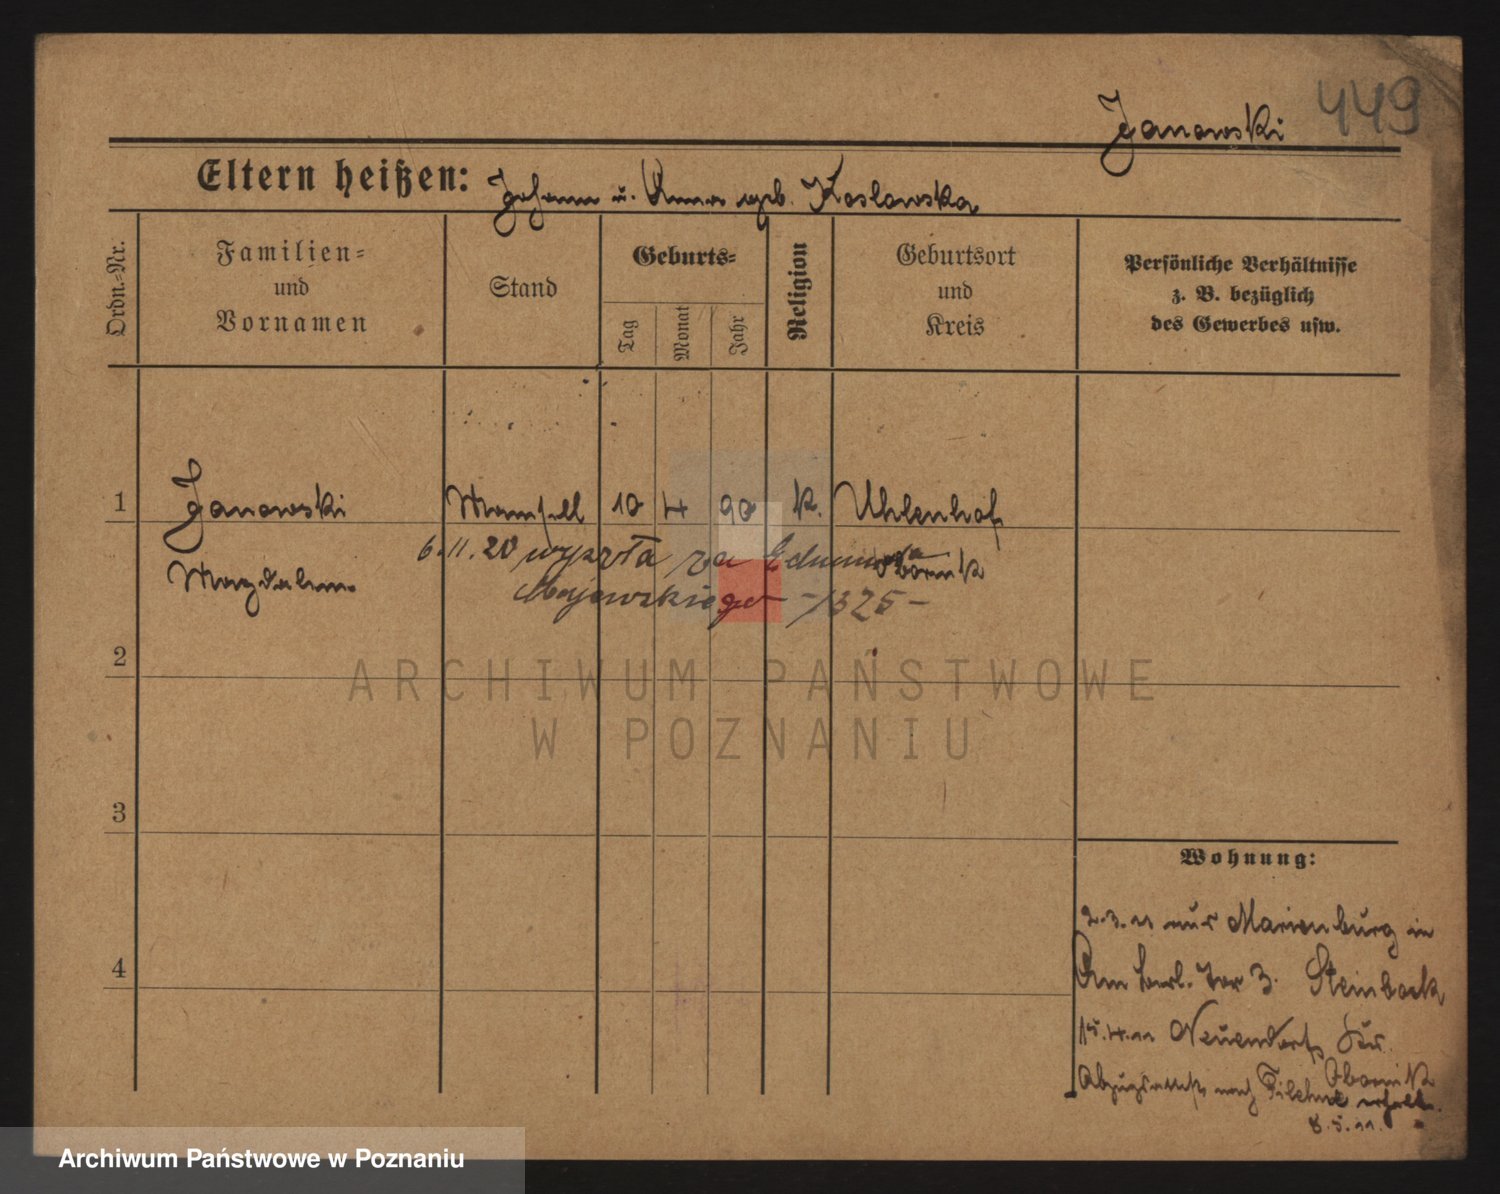 449
Janowski
Eltern heißen: Johann u. Anna geb. Koslowska
Ordn.-Nr.
Familien-
und
Vornamen
Stand
Geburts-
Tag
Monat
Jahr
Religion
Geburtsort
und
Kreis
Persönliche Verhältnisse
z. B. bezüglich
des Gewerbes usw.
1 Janowski Mamsell 10 4 90 k. Uhlenhof
Magdalena Obornik
6.11.20 wyszła za Edmunda
Majewskiego -1325-
2
3
4
Wohnung:
2.3.11 aus Marienburg in
Am Berl. Tor 3. Steinbock
15.4.11 Neuendorf
Obornik
Abzugsattest nach Filehne erhalten.
8.5.11.
ARCHIWUM PAŃSTWOWE
W POZNANIU
Archiwum Państwowe w Poznaniu